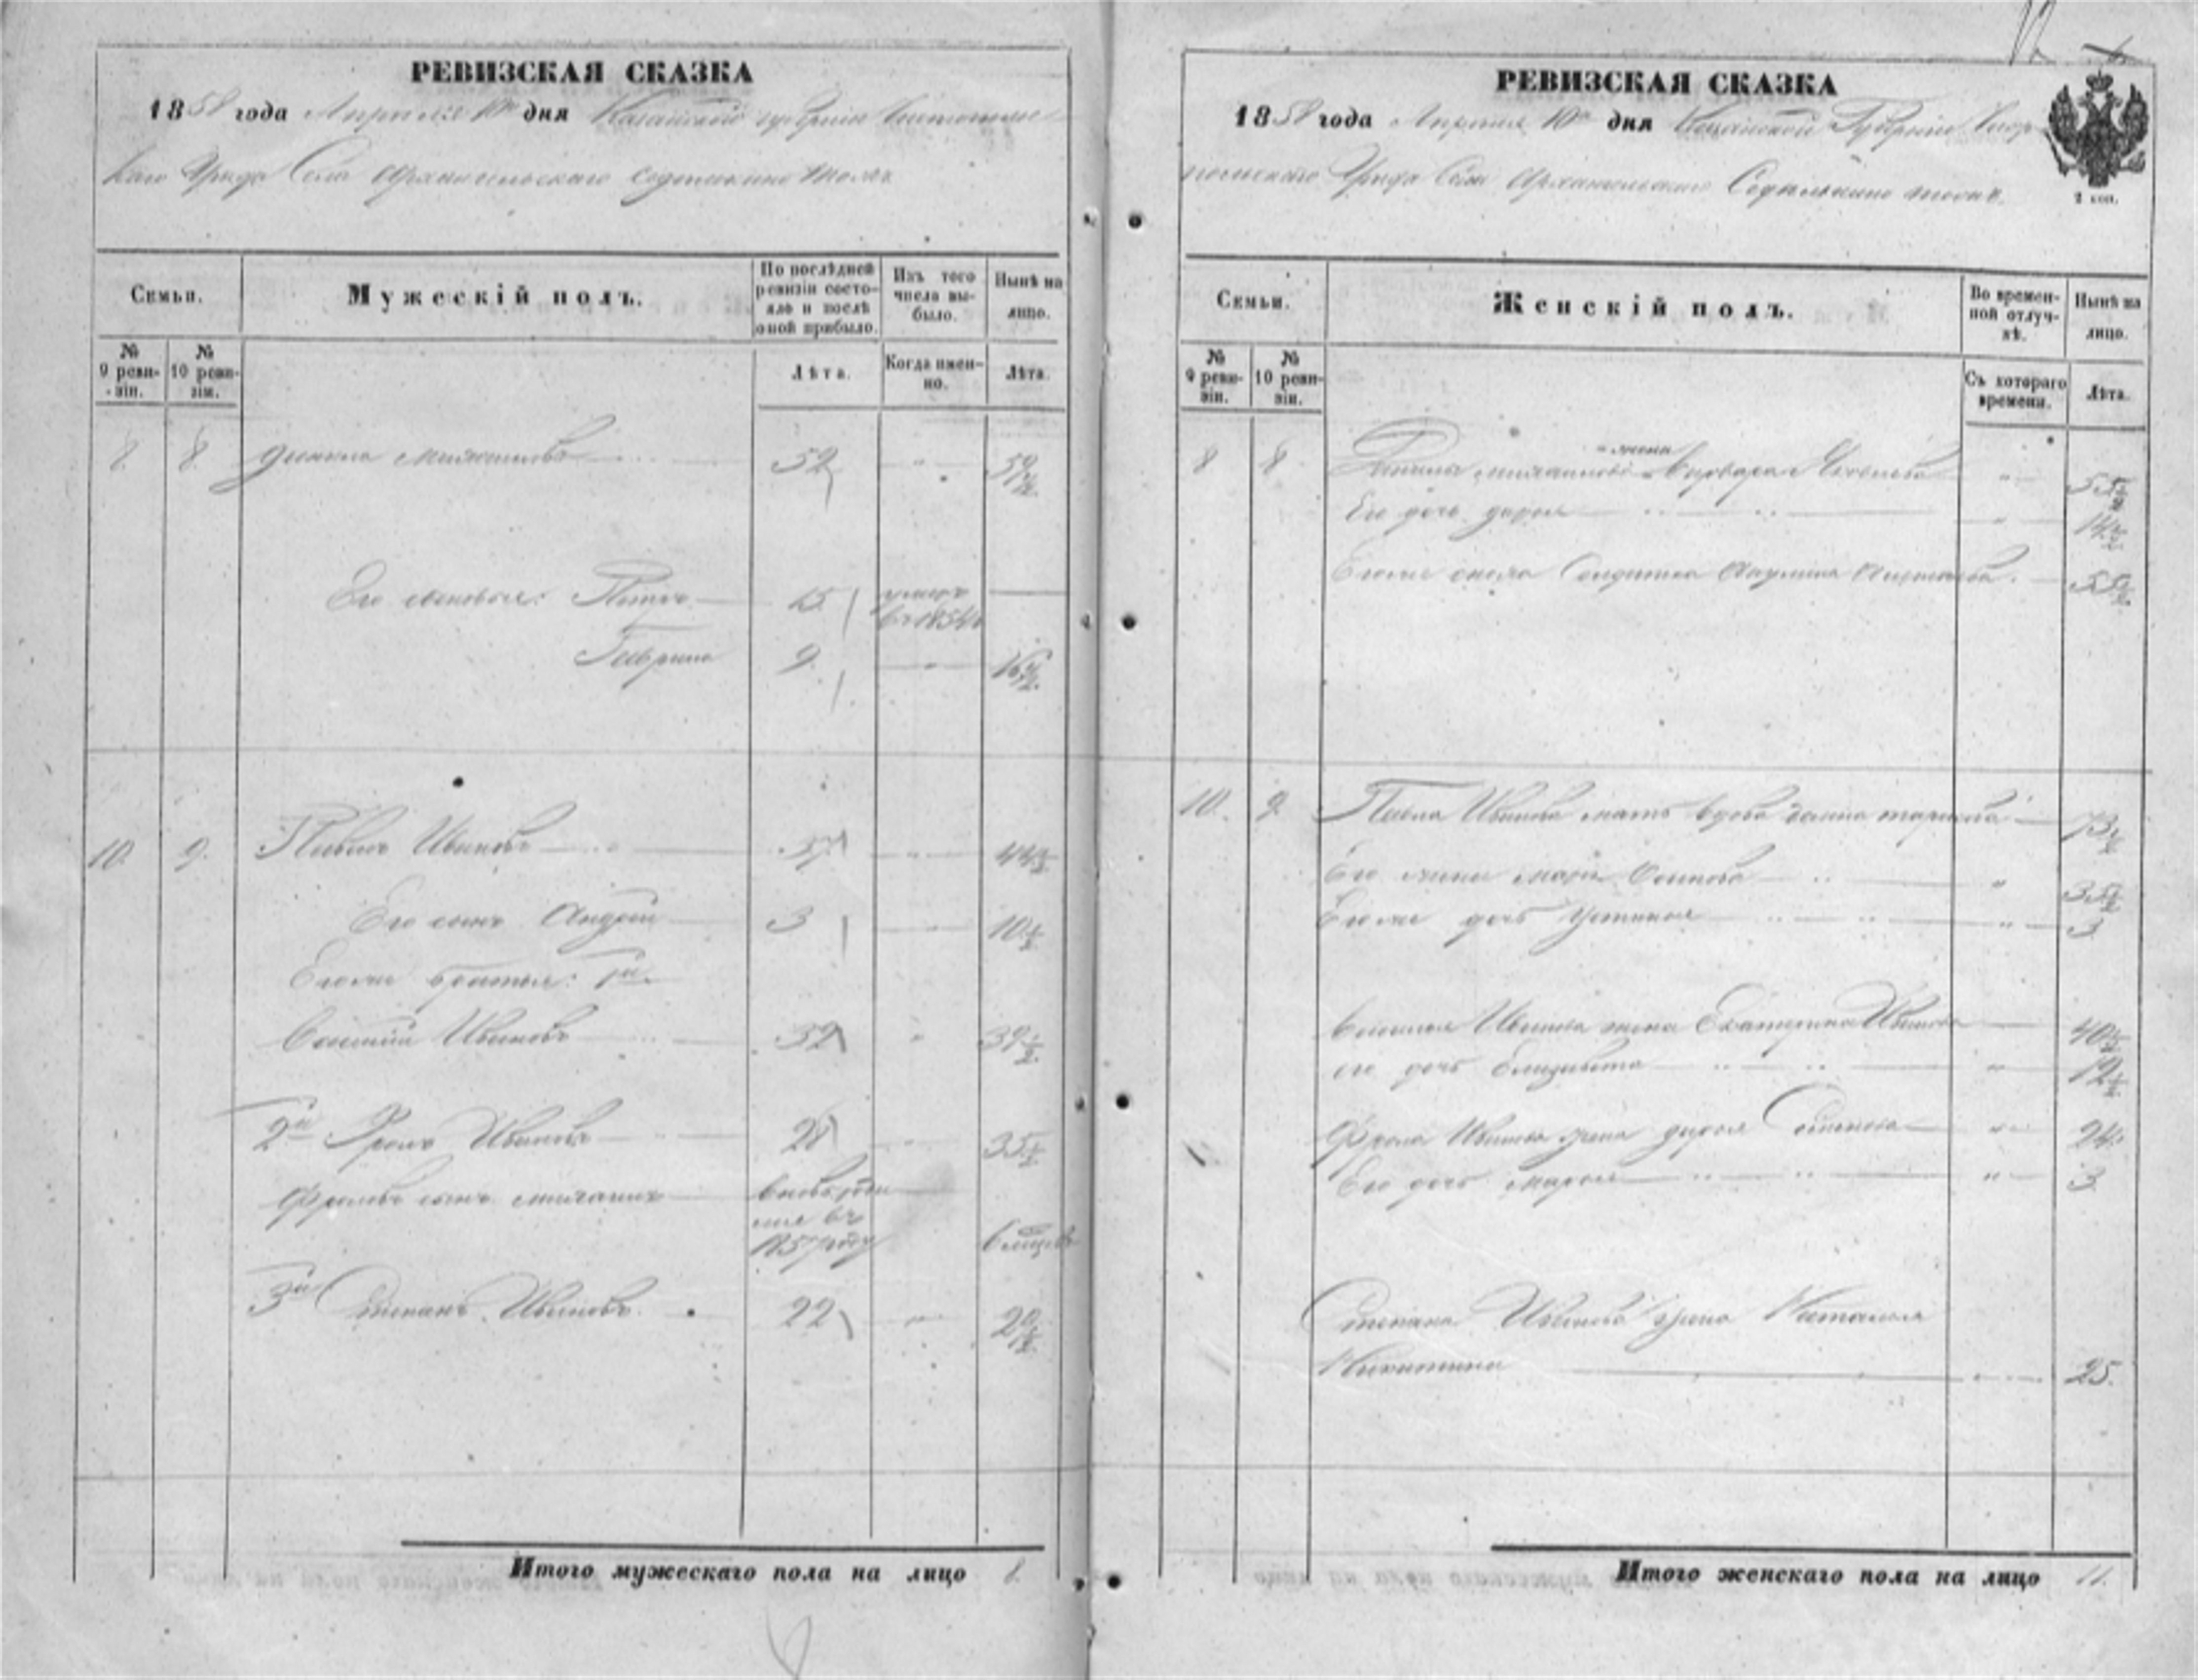 РЕВИЗСКАЯ СКАЗКА
1858 года Апреля 10го дня Казанской губернии Чистополь
скаго Уезда Села Архангельскаго
Семьи.
Мужескій полъ.
По послѣдней ревизіи состояло и послѣ оной прибыло.
Изъ того числа выбыло.
Нынѣ на лицо.
№ 9 ревизіи.
№ 10 ревизіи.
Лѣта.
Когда именно.
Лѣта.
8. 8. 52 59½
Его сыновья: Петръ 15 умеръ въ 1854
Гаврила 9. 16½
10. 9. Павелъ Ивановъ 37 44½
Его сынъ Андрей 3 10½
Его же братья: 1й
Василій Ивановъ 32 39½
2й Фролъ Ивановъ 28 35½
Фроловъ сынъ вновь
въ
1857 году
3й Степанъ Ивановъ. 22 29½
Итого мужескаго пола на лицо 8.
РЕВИЗСКАЯ СКАЗКА
1858 года Апреля 10го дня Казанской Губерніи
польскаго Уезда Села Архангельскаго
2 коп.
Семьи.
Женскій полъ.
Во временной отлучкѣ.
Нынѣ на лицо.
№ 9 ревизіи.
№ 10 ревизіи.
Съ котораго времени.
Лѣта.
8 8 жена Варвара 55½
Его дочь Дарья 14½
Его же сноха Солдатка Акулина 55½
10. 9. Павла Иванова мать вдова 73½
Его жена Осипова 35½
Его же дочь Устинья 3
Василья Иванова жена Екатерина Иванова 40½
его дочь Елизавета 12½
Фрола Иванова жена Дарья 24.
Его дочь Марья 3.
Степана Иванова жена Наталья
Никитина 25.
Итого женскаго пола на лицо 11.